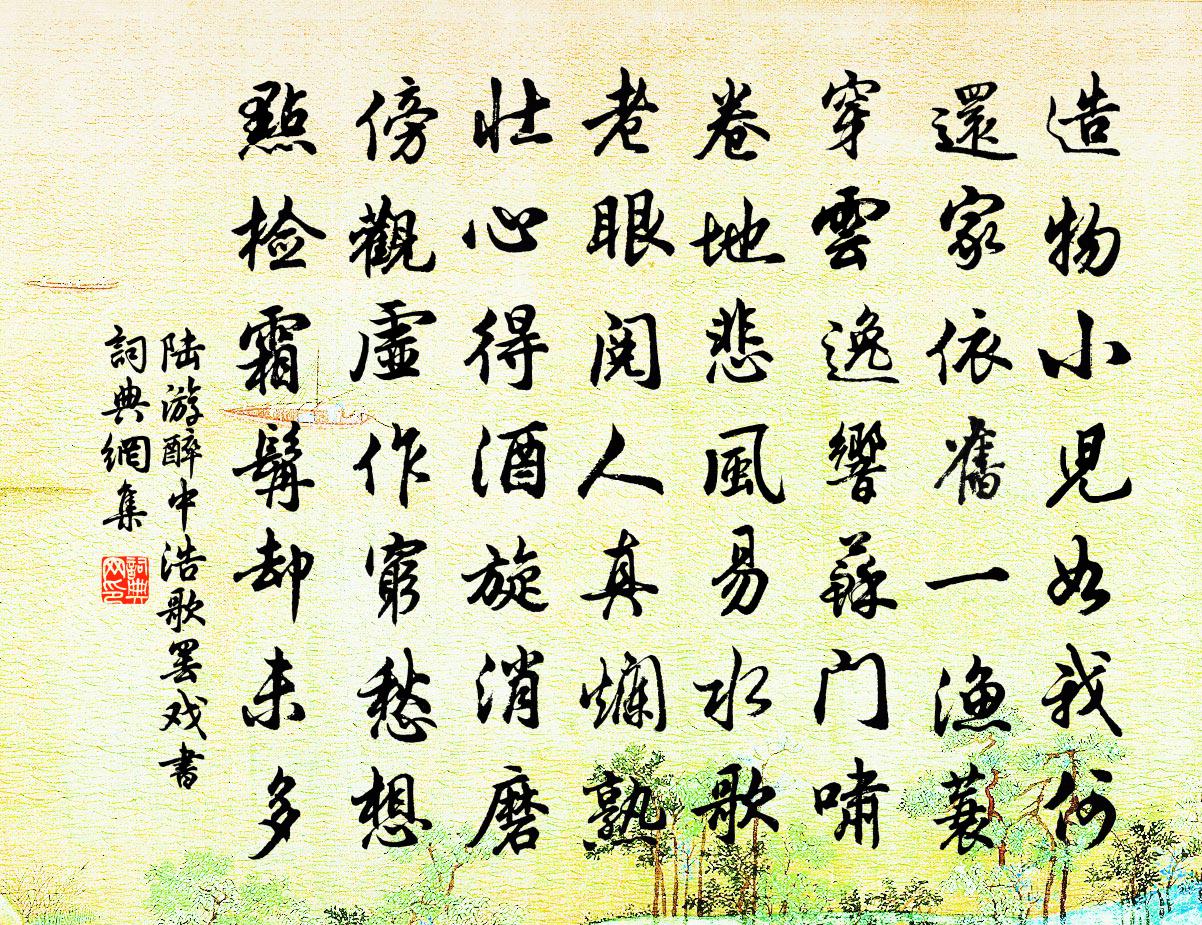 造物小兒如我何
還家依舊一漁蓑
穿雲逸響蘇门嘯
卷地悲風易水歌
老眼閱人真爛熟
壯心得酒旋消磨
傍觀虛作窮愁想
點检霜髯却未多
陆游醉中浩歌罢戏書
詞典網集
詞典网印